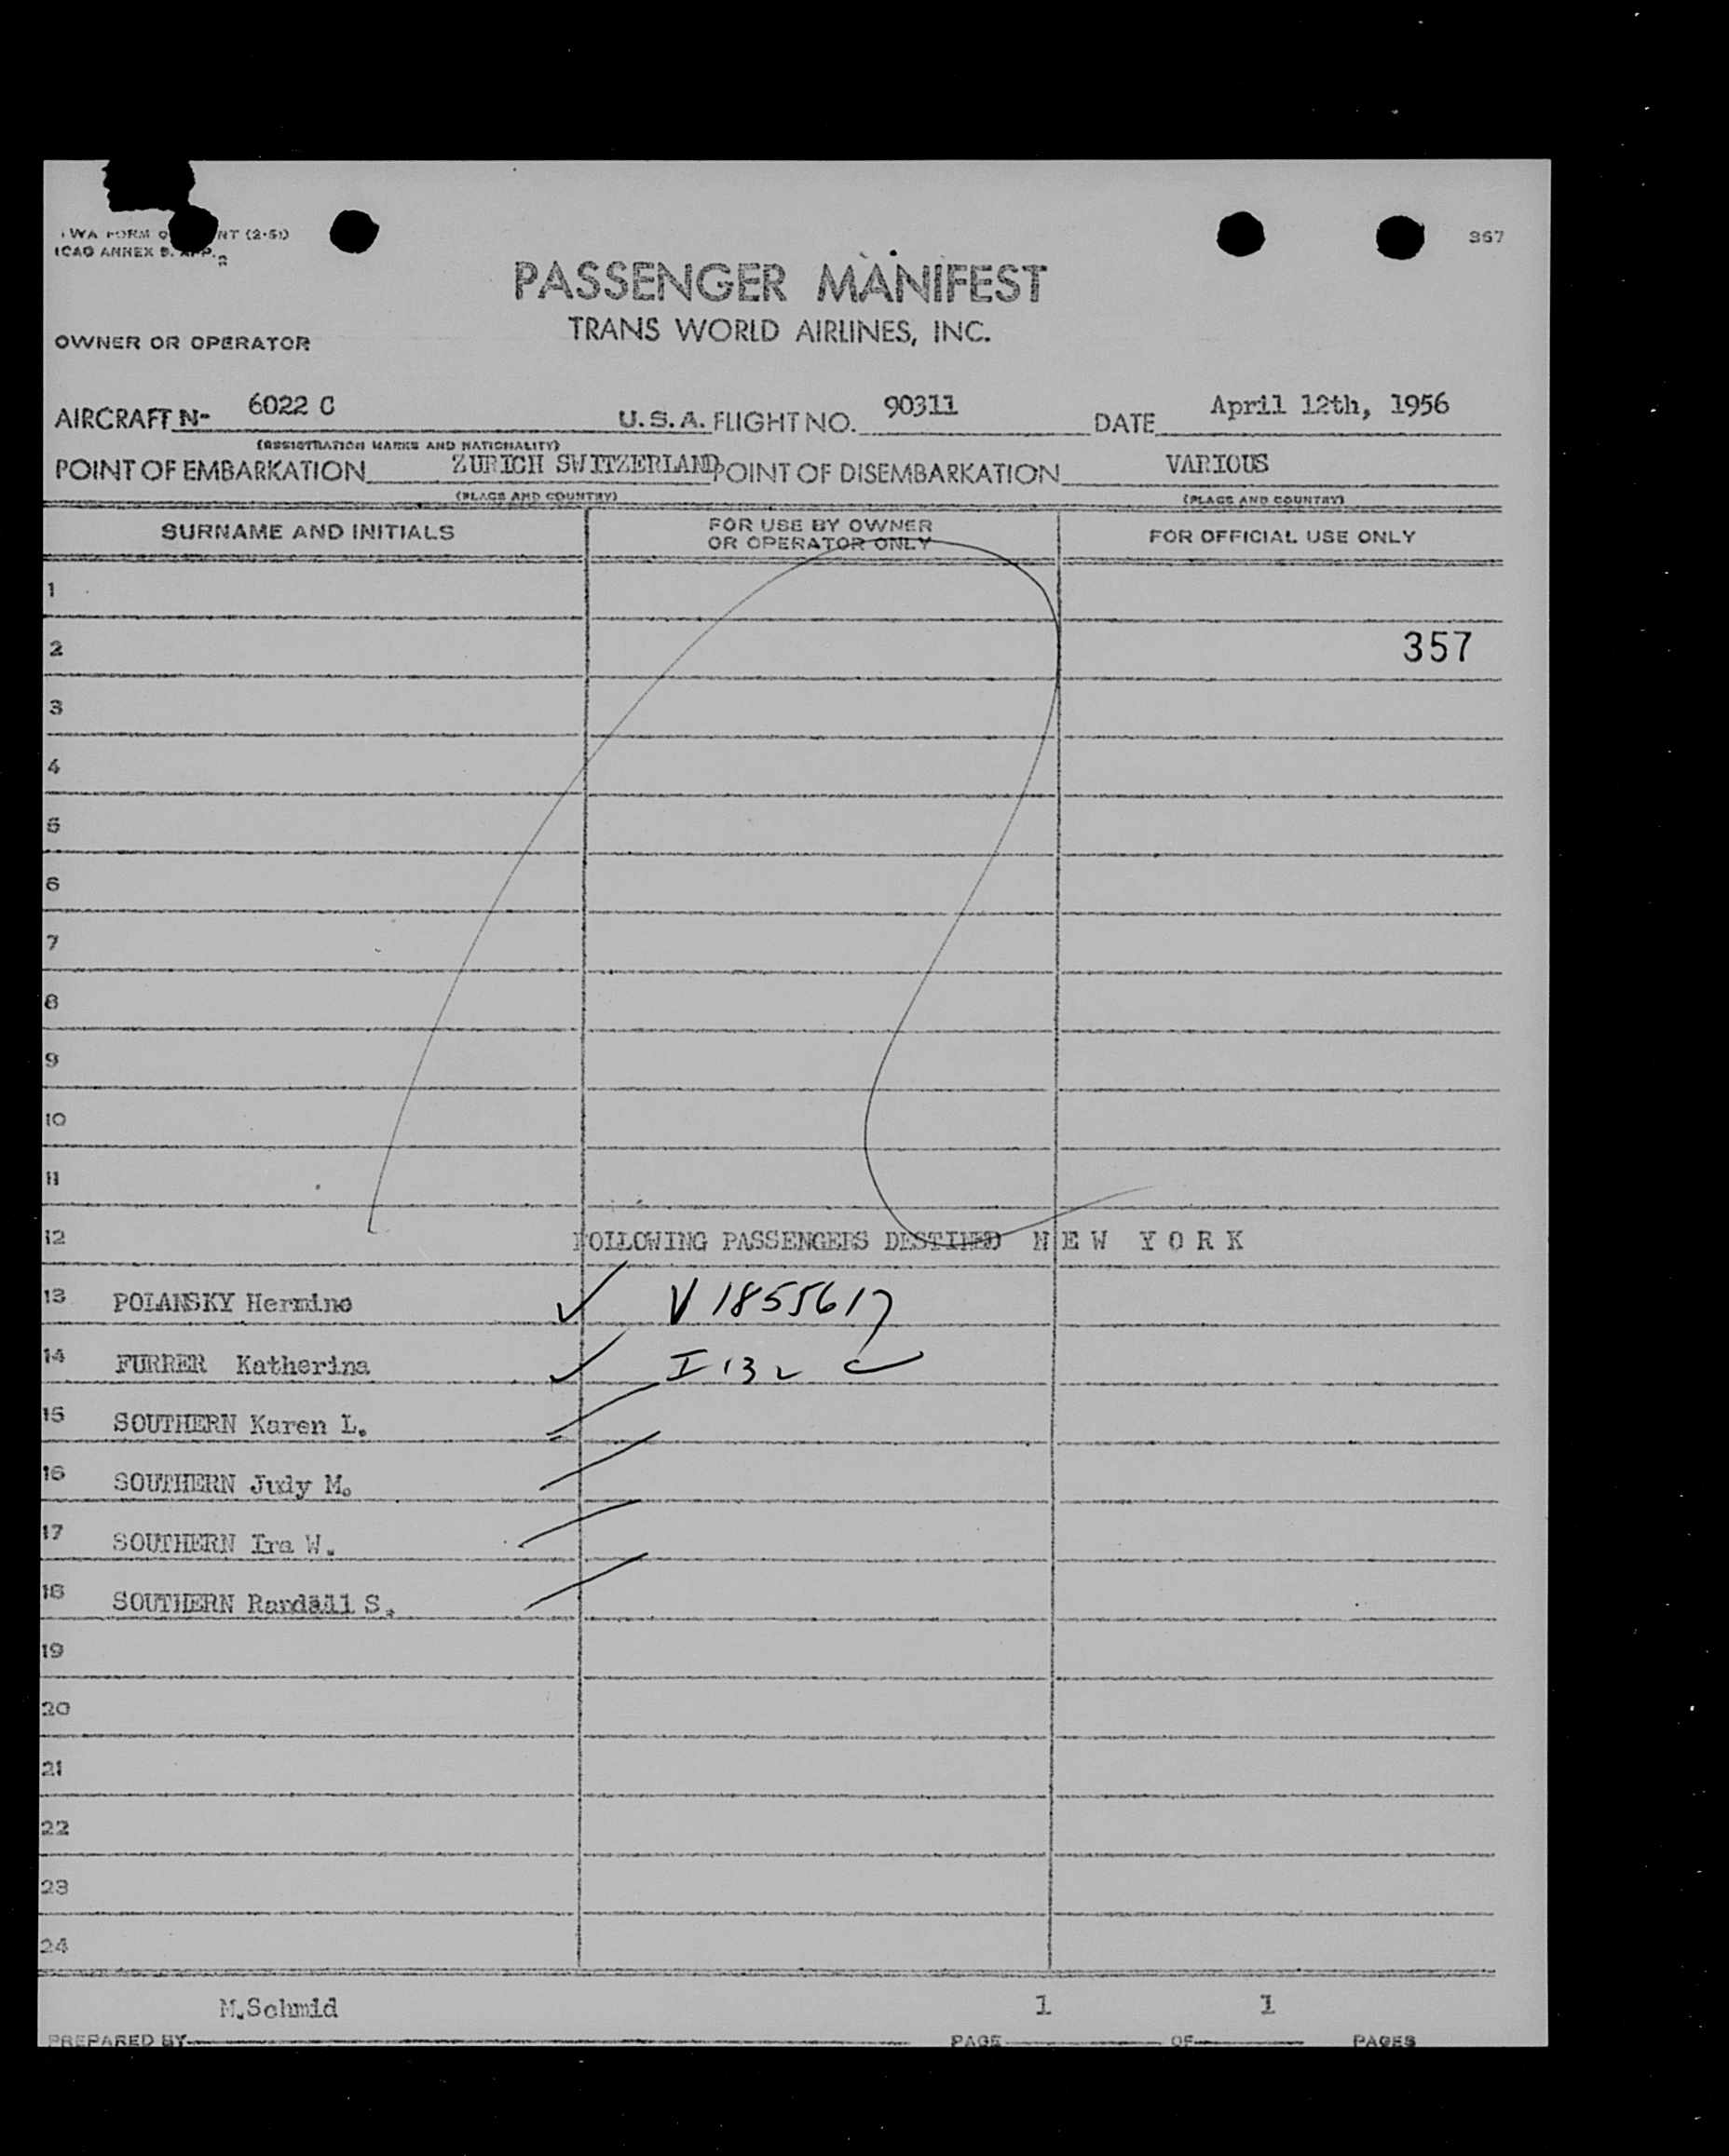 TWA FORM O NT (2-51)
ICAO ANNEX 9. APP. 2
367
PASSENGER MANIFEST
TRANS WORLD AIRLINES, INC.
OWNER OR OPERATOR
AIRCRAFT N- 6022 C U.S.A. FLIGHT NO. 90311 DATE April 12th, 1956
(REGISTRATION MARKS AND NATIONALITY)
POINT OF EMBARKATION ZURICH SWITZERLAND POINT OF DISEMBARKATION VARIOUS
(PLACE AND COUNTRY) (PLACE AND COUNTRY)
SURNAME AND INITIALS FOR USE BY OWNER OR OPERATOR ONLY FOR OFFICIAL USE ONLY
1
2 357
3
4
5
6
7
8
9
10
11
12 FOLLOWING PASSENGERS DESTINED N E W Y O R K
13 POLANSKY Hermine V 1855617
14 FURRER Katherina I 132
15 SOUTHERN Karen L.
16 SOUTHERN Judy M.
17 SOUTHERN Ira W.
18 SOUTHERN Randall S.
19
20
21
22
23
24
M.Schmid 1 1
PREPARED BY PAGE OF PAGES